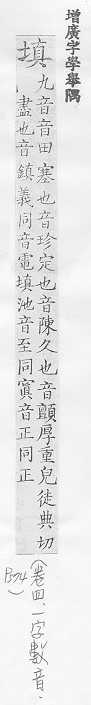 增廣字學舉隅
填
九音音田塞也音珍定也音陳久也音顛厚重皃徒典切
盡也音鎮義同音電填池音至同窴音正同正
（卷四、一字數音、
P.74）